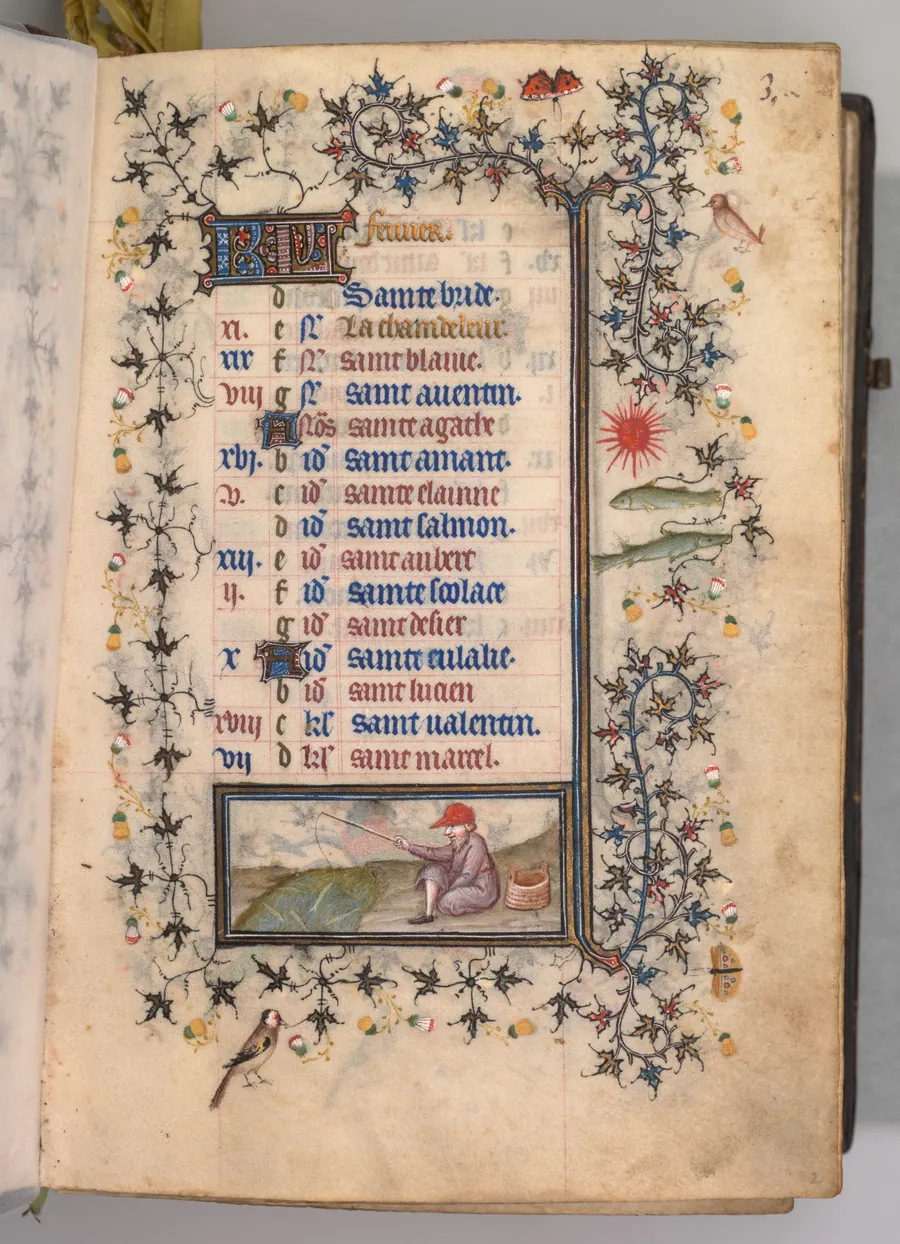 3.
KL feurier.
d Sainte bride.
xi. e N La chandeleur.
xix f N saint blaiue.
viii g N saint auentin.
A Nōs sainte agathe
xvj. b id saint amant.
v. c id sainte elainne
d id saint salmon.
xiij. e id saint aubert
ij. f id sainte scolace
g id saint desier
x A id sainte eulalie.
b id saint lucien
xviii c kl saint ualentin.
vij d kl saint marcel.
2